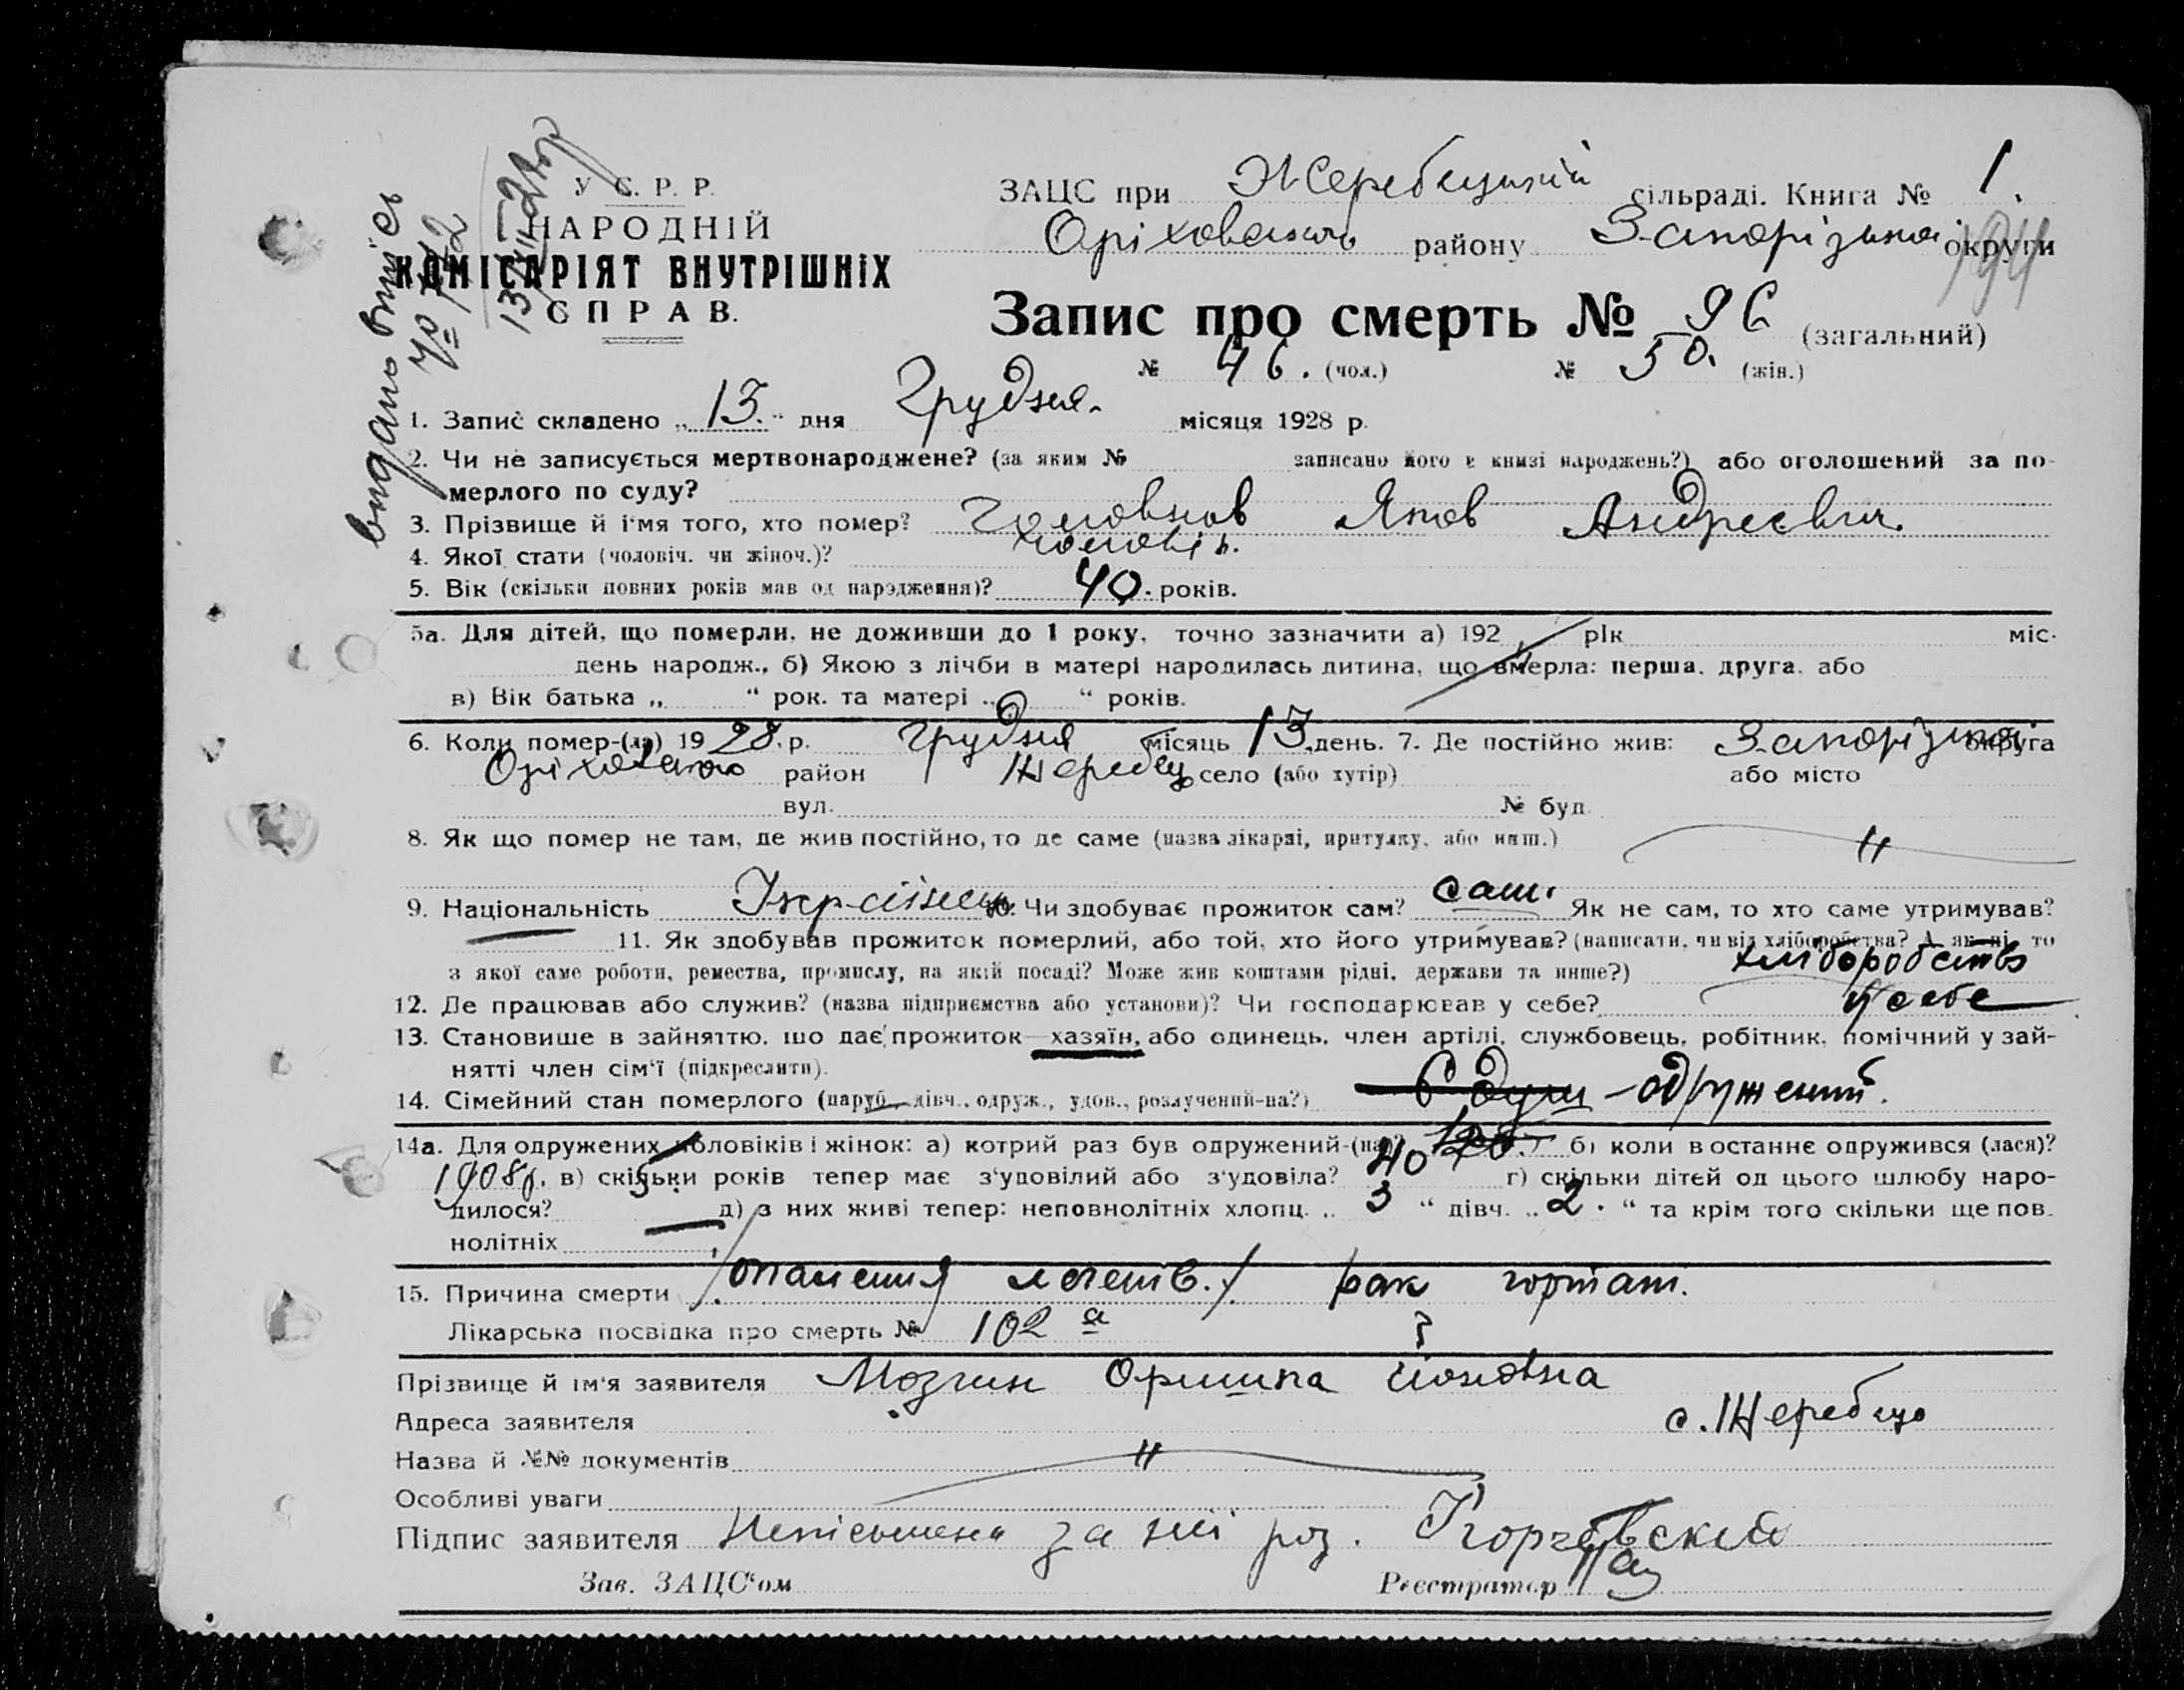 У С. Р. Р.
НАРОДНІЙ
КОМІСАРІЯТ ВНУТРІШНІХ
СПРАВ.
видано виписъ
ЗАЦС при Жеребецький сільраді. Книга № 1.
Оріховського району Запорізької округи
194
Запис про смерть № 96 (загальний)
№ 46. (чол.) № 50. (жін.)
1. Запис складено „13." дня Грудня місяця 1928 р.
2. Чи не записується мертвонароджене? (за яким № записано його в книзі народжень?) або оголошений за по-
мерлого по суду?
3. Прізвище й і'мя того, хто помер? Яков Андреевич.
4. Якої стати (чоловіч. чи жіноч.)? чоловіч.
5. Вік (скільки повних років мав од народження)? 40. років.
5а. Для дітей, що померли, не доживши до 1 року, точно зазначити а) 192 рік міс.
день народж., б) Якою з лічби в матері народилась дитина, що вмерла: перша, друга, або
в) Вік батька „ " рок. та матері „ " років.
6. Коли помер-(ла) 1928. р. Грудня місяць 13. день. 7. Де постійно жив: Запорізької округа
Оріховського район Жеребець село (або хутір) або місто
вул. № буд.
8. Як що помер не там, де жив постійно, то де саме (назва лікарні, притулку, або инш.) "
9. Національність Українець 10. Чи здобуває прожиток сам? сам. Як не сам, то хто саме утримував?
11. Як здобував прожиток померлий, або той, хто його утримував? (написати, чи від хліборобства? А як ні, то
з якої саме роботи, ремества, промислу, на якій посаді? Може жив коштами рідні, держави та инше?) хліборобство
12. Де працював або служив? (назва підприємства або установи)? Чи господарював у себе? у себе
13. Становище в зайняттю, що дає прожиток—хазяїн, або одинець, член артілі, службовець, робітник, помічний у зай-
нятті член сім'ї (підкреслити).
14. Сімейний стан померлого (паруб., дівч., одруж., удов., розлучений-на?) 6 душ - одружений.
14а. Для одружених чоловіків і жінок: а) котрий раз був одружений-(на)? б) коли востаннє одружився (лася)?
1908р. в) скільки років тепер має з'удовілий або з'удовіла? 40 г) скільки дітей од цього шлюбу наро-
дилося? 5. д) з них живі тепер: неповнолітніх хлопц. „ 3 " дівч. „ 2. " та крім того скільки ще пов-
нолітніх
15. Причина смерти рак гортані.
Лікарська посвідка про смерть № 102 а
Прізвище й ім'я заявителя Оришка
Адреса заявителя с. Жеребець
Назва й №№ документів "
Особливі уваги
Підпис заявителя Неписьмена за неї роз.
Зав. ЗАЦС'ом Реєстратор